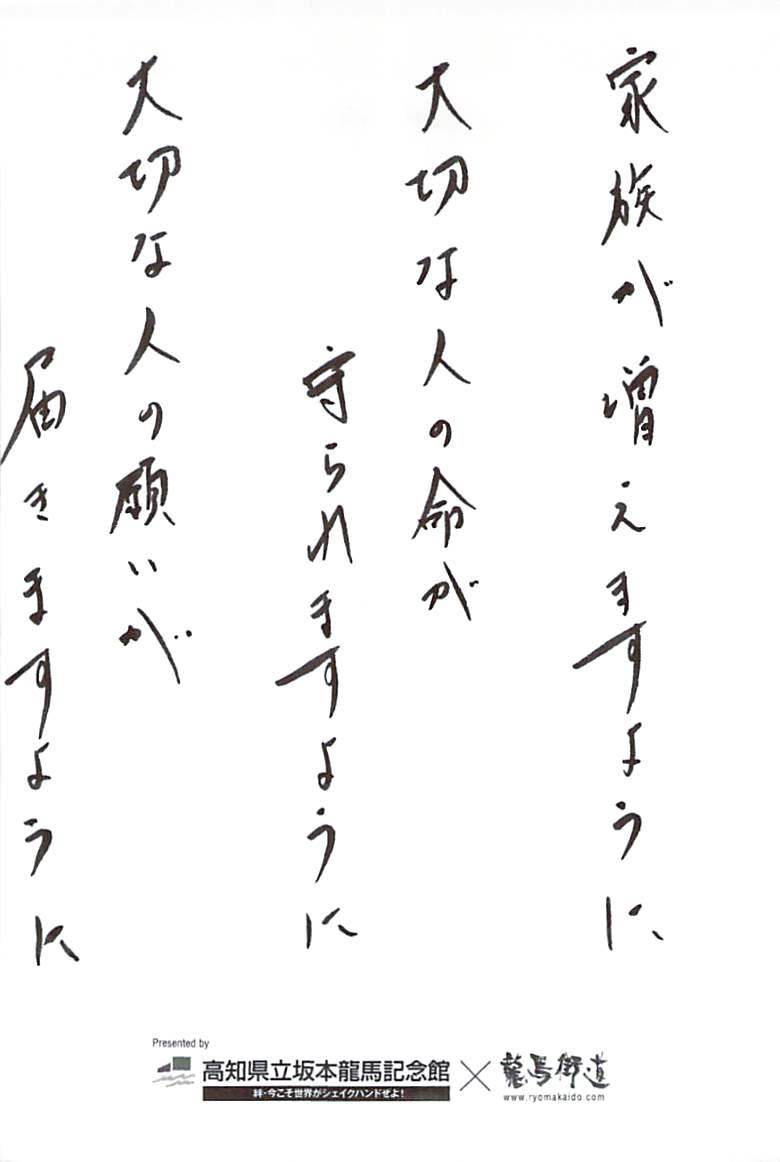 家族が増えますように
大切な人の命が
守られますように
大切な人の願いが
届きますように
Presented by
高知県立坂本龍馬記念館×龍馬街道
絆・今こそ世界がシェイクハンドせよ!
www.ryomakaido.com